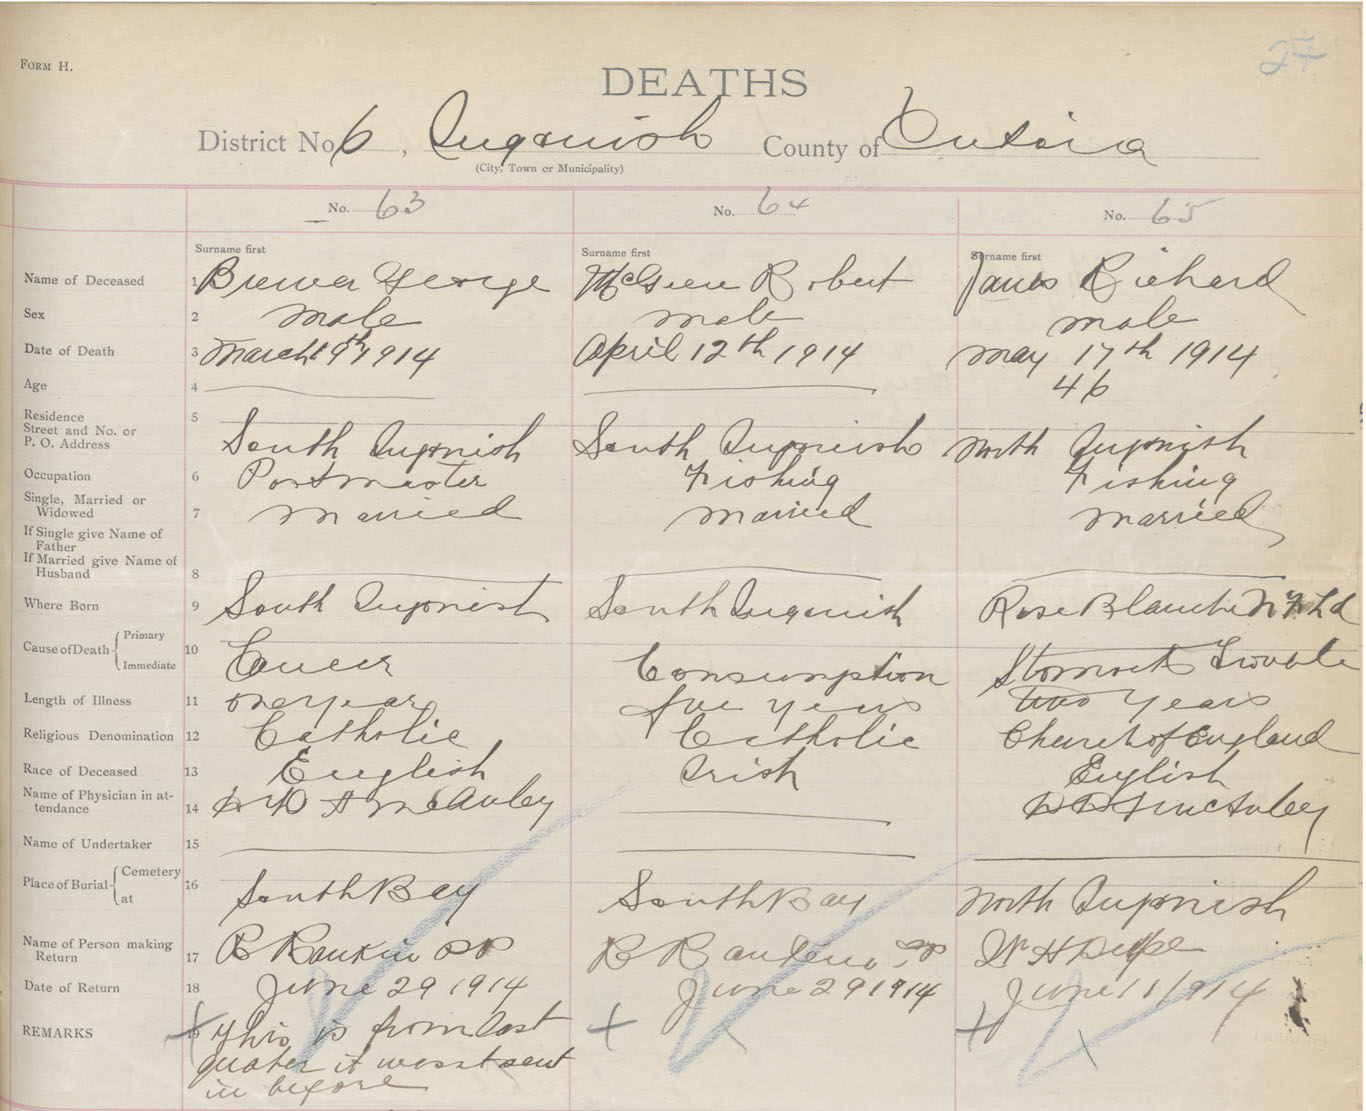 27
FORM H.
DEATHS
District No 6, Ingonish County of Victoria
(City, Town or Municipality)
No. 63 No. 64 No. 65
Surname first Surname first Surname first
Name of Deceased 1 Brewer George McGrere Robert James Richard
Sex 2 male male male
Date of Death 3 March 9th 1914 April 12th 1914 may 17th 1914
Age 4 46
Residence 5
Street and No. or
P. O. Address South Ingonish South Ingonish North Ingonish
Occupation 6 Postmaster Fishing Fishing
Single, Married or
Widowed 7 Married Married Married
If Single give Name of
Father
If Married give Name of
Husband 8
Where Born 9 South Ingonish South Ingonish Rose Blanche Nfld
Cause of Death { Primary 10
Immediate Cancer Consumption Stomach Trouble
Length of Illness 11 one year five years two years
Religious Denomination 12 Catholic Catholic Church of England
Race of Deceased 13 English Irish English
Name of Physician in at-
tendance 14 McAuley McAuley
Name of Undertaker 15
Place of Burial { Cemetery 16
at South Bay South Bay North Ingonish
Name of Person making
Return 17 R Rankin PP R Rankin PP W H
Date of Return 18 June 29 1914 June 29 1914 June 11 1914
REMARKS 19 This is from last
quater it wasst sent
in before